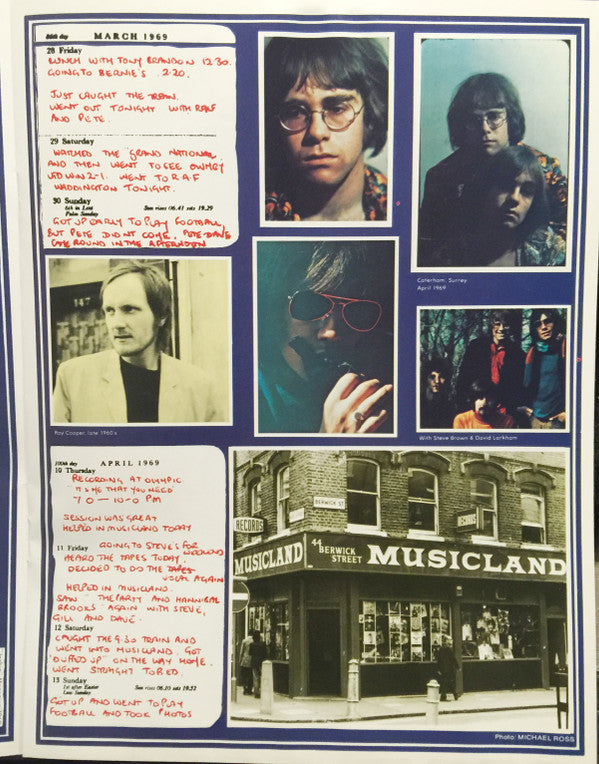 88th day MARCH 1969
28 Friday
LUNCH WITH TONY BRANDON 12.30.
GOING TO BERNIE'S . 2.20.
JUST CAUGHT THE TRAIN.
WENT OUT TONIGHT WITH
AND PETE.
29 Saturday
WATCHED THE "GRAND NATIONAL"
AND THEN WENT TO SEE
UTD WIN 2-1. WENT TO R.A.F
WADDINGTON TONIGHT.
30 Sunday
6th in Lent
Palm Sunday
Sun rises 06.43 sets 19.29
GOT UP EARLY TO PLAY FOOTBALL,
BUT PETE DIDN'T COME. PETE + DAVE
CAME ROUND IN THE AFTERNOON
Caterham, Surrey
April 1969
147
Ray Cooper, late 1960's
With Steve Brown & David Larkham
100th day APRIL 1969
10 Thursday
RECORDING AT OLYMPIC
IT'S ME THAT YOU NEED
7.0 — 10-0 PM
SESSION WAS GREAT
HELPED IN MUSICLAND TODAY
11 Friday GOING TO STEVE'S FOR
WEEKEND
HEARD THE TAPES TODAY.
DECIDED TO DO THE TAPES
VOCAL AGAIN
HELPED IN MUSICLAND.
SAW "THE PARTY AND HANNIBAL
BROOKS" AGAIN WITH STEVE,
GILL AND DAVE.
12 Saturday
CAUGHT THE 9.30 TRAIN AND
WENT INTO MUSICLAND. GOT
"DUFFED UP" ON THE WAY HOME.
WENT STRAIGHT TO BED.
13 Sunday
1st after Easter
Low Sunday
Sun rises 06.10 sets 19.52
GOT UP AND WENT TO PLAY
FOOTBALL AND TOOK PHOTOS
BERWICK ST
RECORDS
RECORDS
MUSICLAND
44 BERWICK
STREET
MUSICLAND
Photo: MICHAEL ROSS